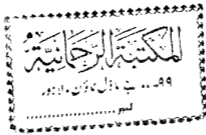 المكتبة الرحمانية
۹۹ ... جے ماڈل ٹاؤن ۔ لاہور
نمبر ....................